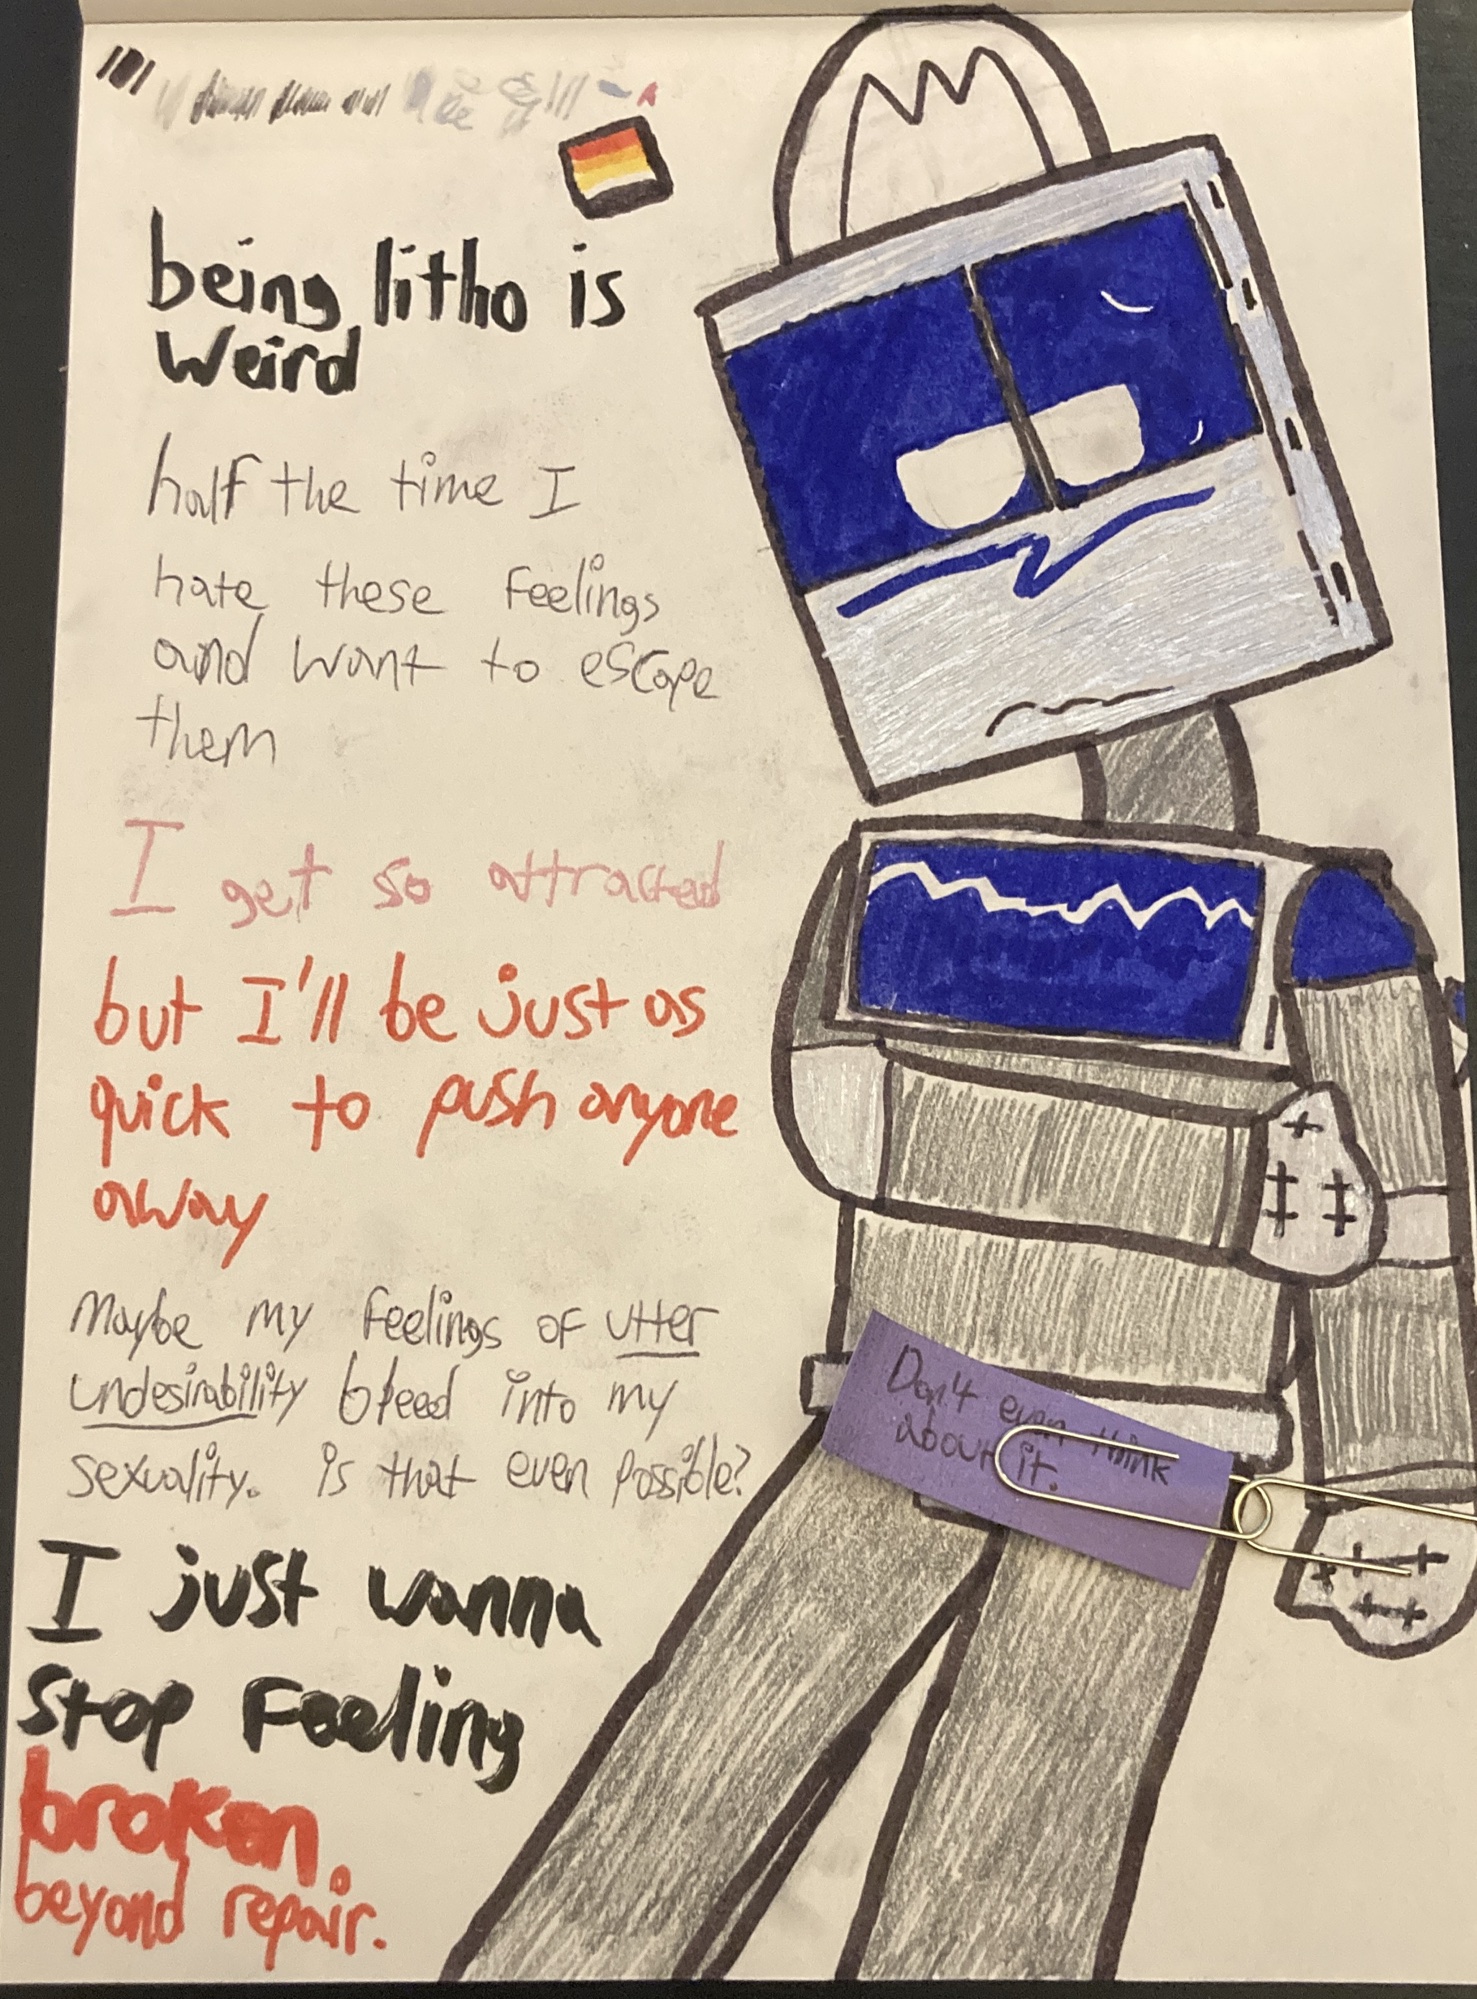 being litho is
weird
half the time I
hate these feelings
and want to escape
them
I get so attracted
but I'll be just as
quick to push anyone
away
Maybe my feelings of utter
undesirability bleed into my
sexuality. is that even possible?
I just wanna
stop feeling
broken.
beyond repair.
Don't even think
about it.